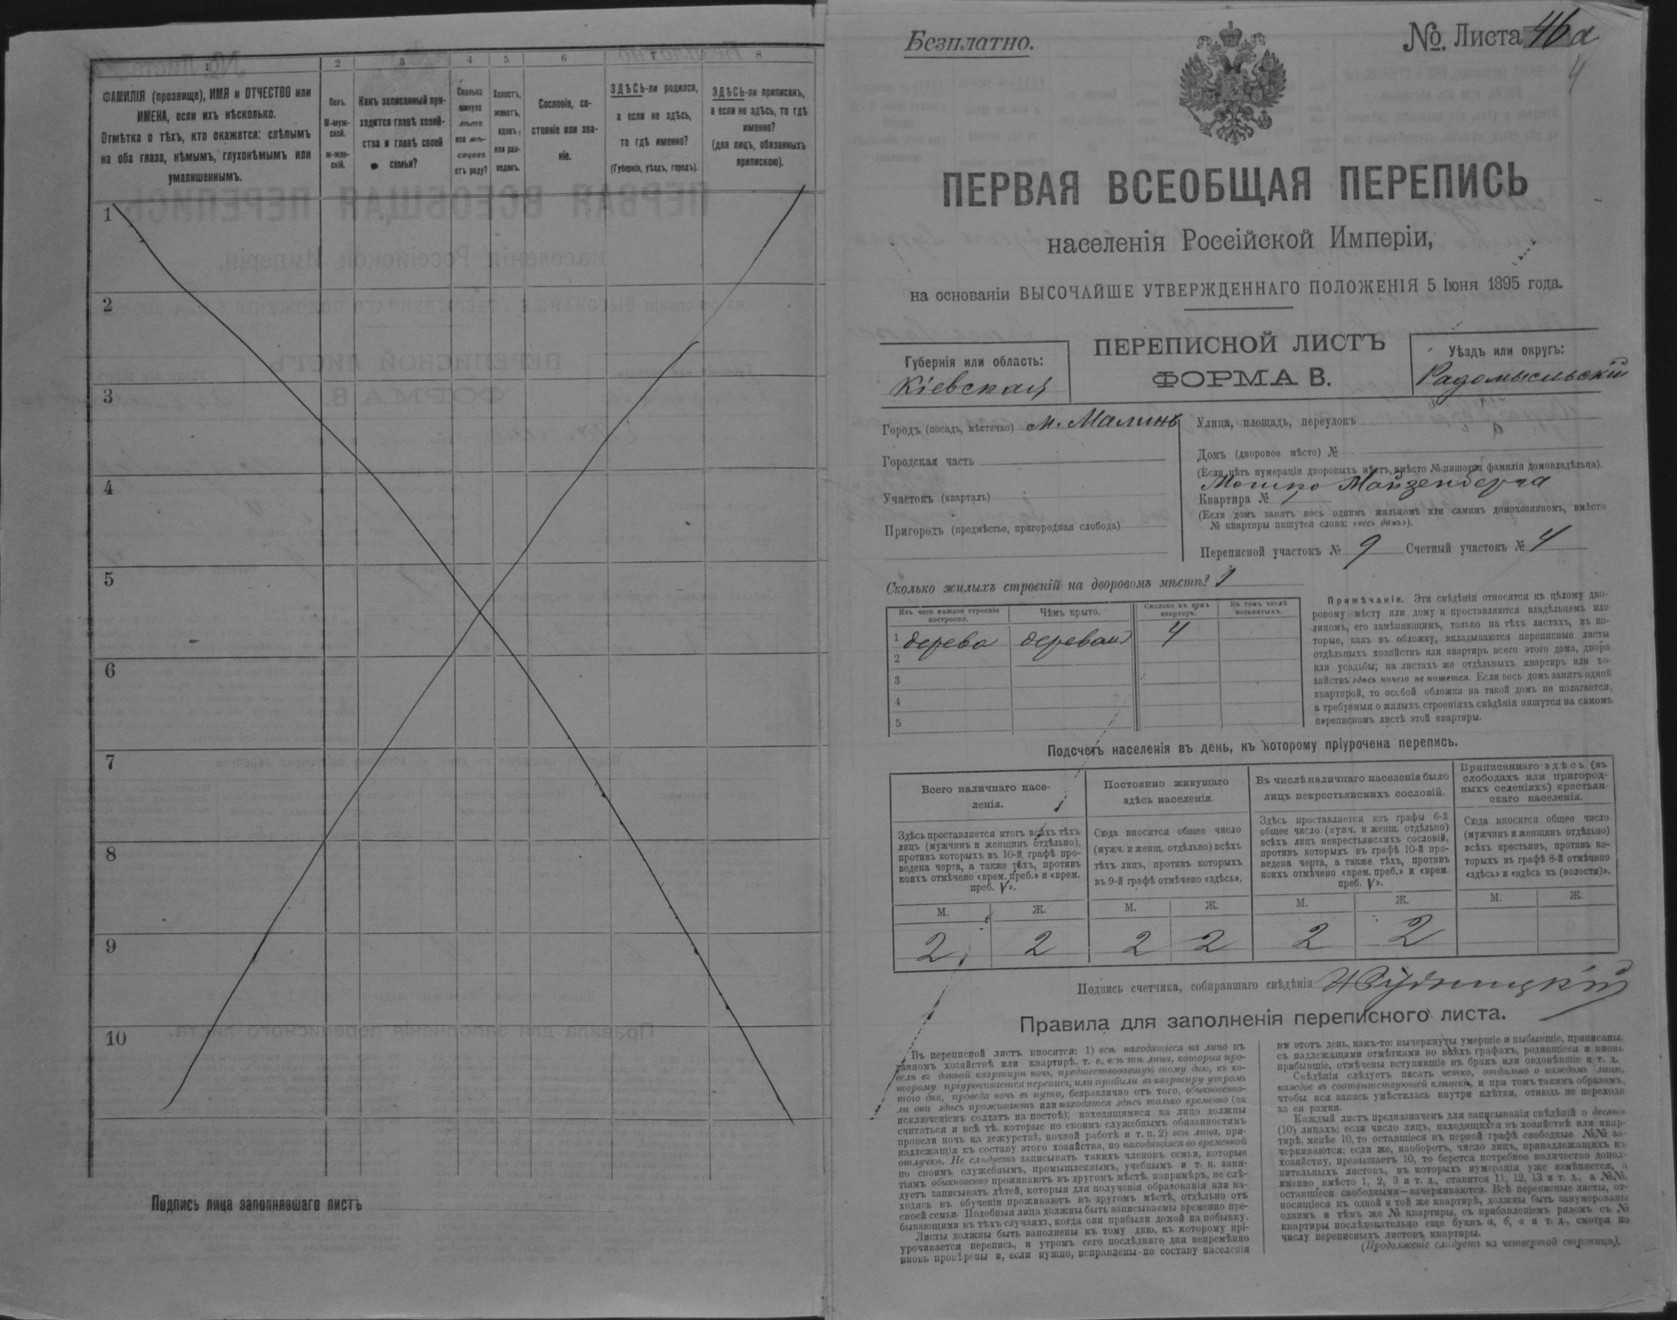 1
2
3
4
5
6
7
8
ФАМИЛІЯ (прозвище), ИМЯ и ОТЧЕСТВО или
ИМЕНА, если ихъ нѣсколько.
Отмѣтка о тѣхъ, кто окажется: слѣпымъ
на оба глаза, нѣмымъ, глухонѣмымъ или
умалишеннымъ.
Полъ.
М-муж-
ской.
Ж-жен-
скій.
Какъ записанный при-
ходится главѣ хозяй-
ства и главѣ своей
семьи?
Сколько
минуло
лѣтъ
или мѣ-
сяцевъ
отъ роду?
Холостъ,
женатъ,
вдовъ,
или раз-
веденъ.
Сословіе, со-
стояніе или зва-
ніе.
ЗДѢСЬ-ли родился,
а если не здѣсь,
то гдѣ именно?
(Губернія, уѣздъ, городъ).
ЗДѢСЬ-ли приписанъ,
а если не здѣсь, то гдѣ
именно?
(для лицъ, обязанныхъ
припискою).
1
2
3
4
5
6
7
8
9
10
Подпись лица заполнявшаго листъ
Безплатно.
№ Листа 46а
4
ПЕРВАЯ ВСЕОБЩАЯ ПЕРЕПИСЬ
населенія Россійской Имперіи,
на основаніи ВЫСОЧАЙШЕ УТВЕРЖДЕННАГО ПОЛОЖЕНІЯ 5 Іюня 1895 года.
Губернія или область:
Кіевская
ПЕРЕПИСНОЙ ЛИСТЪ
ФОРМА В.
Уѣздъ или округъ:
Радомысльскій
Городъ (посадъ, мѣстечко) м. Малинъ
Городская часть
Участокъ (кварталъ)
Пригородъ (предмѣстье, пригородная слобода)
Улица, площадь, переулокъ
Домъ (дворовое мѣсто) №
(Если нѣтъ нумераціи дворовыхъ мѣстъ, вмѣсто № пишется фамилія домовладѣльца).
Мошко Майзенберга
Квартира № 1
(Если домъ занятъ весь однимъ жильцомъ или самимъ домохозяиномъ, вмѣсто
№ квартиры пишутся слова: «весь домъ»).
Переписной участокъ № 9 Счетный участокъ № 4
Сколько жилыхъ строеній на дворовомъ мѣстѣ? 1
Изъ чего каждое строеніе
построено.
Чѣмъ крыто.
Сколько въ немъ
квартиръ.
Въ томъ числѣ
незанятыхъ.
1 дерева деревом 4
2
3
4
5
Примѣчаніе. Эти свѣдѣнія относятся къ цѣлому дво-
ровому мѣсту или дому и проставляются владѣльцемъ или
лицомъ, его замѣняющимъ, только на тѣхъ листахъ, въ ко-
торые, какъ въ обложку, вкладываются переписные листы
отдѣльныхъ хозяйствъ или квартиръ всего этого дома, двора
или усадьбы; на листахъ же отдѣльныхъ квартиръ или хо-
зяйствъ здѣсь ничего не пишется. Если весь домъ занятъ одной
квартирой, то особой обложки на такой домъ не полагается,
а требуемыя о жилыхъ строеніяхъ свѣдѣнія пишутся на самомъ
переписномъ листѣ этой квартиры.
Подсчетъ населенія въ день, къ которому пріурочена перепись.
Всего наличнаго насе-
ленія.
Постоянно живущаго
здѣсь населенія.
Въ числѣ наличнаго населенія было
лицъ некрестьянскихъ сословій.
Приписаннаго здѣсь (въ
слободахъ или пригород-
ныхъ селеніяхъ) крестьян-
скаго населенія.
Здѣсь проставляется итогъ всѣхъ тѣхъ
лицъ (мужчинъ и женщинъ отдѣльно),
противъ которыхъ въ 10-й графѣ про-
ведена черта, а также тѣхъ, противъ
коихъ отмѣчено «врем. преб.» и «врем.
преб. V».
Сюда вносится общее число
(мужч. и женщ. отдѣльно) всѣхъ
тѣхъ лицъ, противъ которыхъ
въ 9-й графѣ отмѣчено «здѣсь».
Здѣсь проставляется изъ графы 6-й
общее число (мужч. и женщ. отдѣльно)
всѣхъ лицъ некрестьянскихъ сословій,
противъ которыхъ въ графѣ 10-й про-
ведена черта, а также тѣхъ, противъ
коихъ отмѣчено «врем. преб.» и «врем.
преб. V».
Сюда вносится общее число
(мужчинъ и женщинъ отдѣльно)
всѣхъ крестьянъ, противъ ко-
торыхъ въ графѣ 8-й отмѣчено
«здѣсь» и «здѣсь къ (волости)».
М. Ж. М. Ж. М. Ж. М. Ж.
2 2 2 2 2 2
Подпись счетчика, собиравшаго свѣдѣнія
Правила для заполненія переписного листа.
Въ переписной листъ вносятся: 1) всѣ находящіеся на лицо въ
данномъ хозяйствѣ или квартирѣ, т. е. всѣ тѣ лица, которыя про-
вели въ данной квартирѣ ночь, предшествовавшую тому дню, къ ко-
торому пріурочивается перепись, или прибыли въ квартиру утромъ
того дня, проведя ночь въ пути, безразлично отъ того, обыкновенно-
ли они здѣсь проживаютъ или находятся здѣсь только временно (за
исключеніемъ солдатъ на постоѣ); находящимися на лицо должны
считаться и всѣ тѣ, которые по своимъ служебнымъ обязанностямъ
провели ночь на дежурствѣ, ночной работѣ и т. п. 2) всѣ лица, при-
надлежащія къ составу этого хозяйства, но находящіяся во временной
отлучкѣ. Не слѣдуетъ записывать такихъ членовъ семьи, которые
по своимъ служебнымъ, промышленнымъ, учебнымъ и т. п. заня-
тіямъ обыкновенно проживаютъ въ другомъ мѣстѣ, напримѣръ, не слѣ-
дуетъ записывать дѣтей, которыя для полученія образованія или на-
ходясь въ обученіи проживаютъ въ другомъ мѣстѣ, отдѣльно отъ
своей семьи. Подобныя лица должны быть записываемы временно пре-
бывающими въ тѣхъ случаяхъ, когда они прибыли домой на побывку.
Листы должны быть заполнены къ тому дню, къ которому прі-
урочивается перепись, и утромъ сего послѣдняго дня непремѣнно
вновь провѣрены и, если нужно, исправлены по составу населенія
въ этотъ день, какъ-то: вычеркнуты умершіе и выбывшіе, приписаны,
съ надлежащими отмѣтками во всѣхъ графахъ, родившіеся и вновь
прибывшіе, отмѣчены вступившіе въ бракъ или овдовѣвшіе и т. д.
Свѣдѣнія слѣдуетъ писать четко, отдѣльно о каждомъ лицѣ,
каждое въ соотвѣтствующей клѣткѣ, и при томъ такимъ образомъ,
чтобы вся запись умѣстилась внутри клѣтки, отнюдь не переходя
за ея рамки.
Каждый листъ предназначенъ для записыванія свѣдѣній о десяти
(10) лицахъ; если число лицъ, находящихся въ хозяйствѣ или квар-
тирѣ, менѣе 10, то оставшіеся въ первой графѣ свободные №№ за-
черкиваются; если же, наоборотъ, число лицъ, принадлежащихъ къ
хозяйству, превышаетъ 10, то берется потребное количество допол-
нительныхъ листовъ, въ которыхъ нумерація уже измѣняется, а
именно вмѣсто 1, 2, 3 и т. д., ставится 11, 12, 13 и т. д., а №№,
оставшіеся свободными—зачеркиваются. Всѣ переписные листы, от-
носящіеся къ одной и той же квартирѣ, должны быть занумерованы
однимъ и тѣмъ же № квартиры, съ прибавленіемъ рядомъ съ №
квартиры послѣдовательно еще буквъ а, б, в и т. д., смотря по
числу переписныхъ листовъ квартиры.
(Продолженіе слѣдуетъ на четвертой страницѣ).